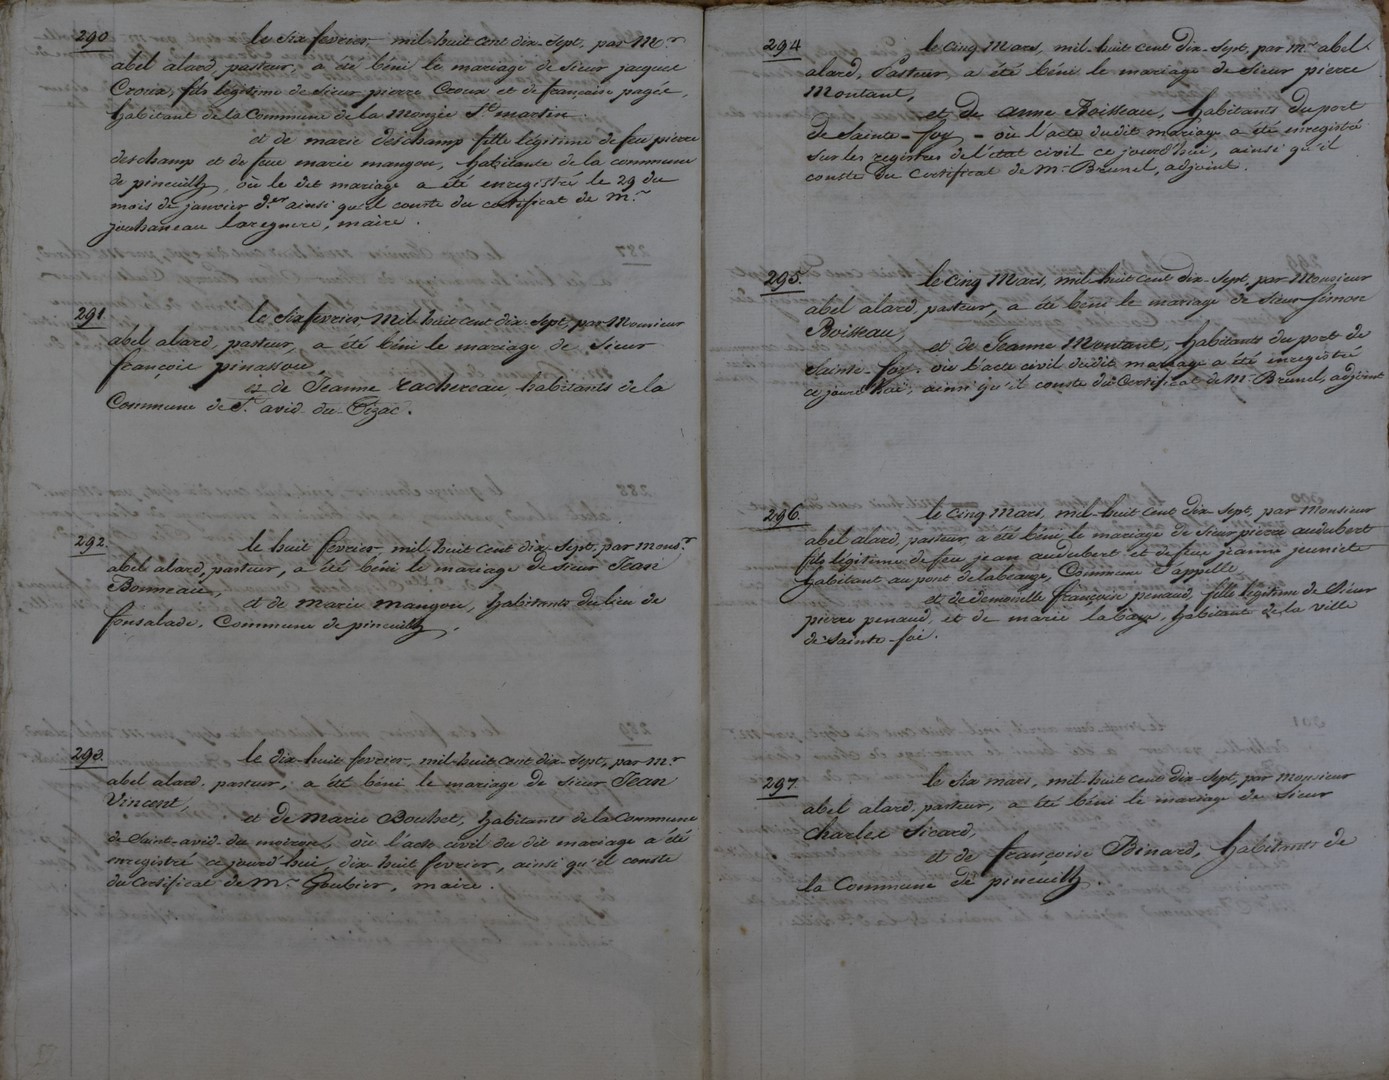 290
le Six fevrier, mil-huit cent dix-Sept, par Mr
abel alard, pasteur, a été béni le mariage de Sieur jacques
Croux, fils légitime de Sieur pierre Croux et de françoise pagée,
habitant de la Commune de la Monzie St martin.
et de marie deschamp fille légitime de feu pierre
deschamp et de feue marie mangou, habitante de la commune
de pineuilh, où le dit mariage a été enregistré le 29 du
mois de janvier d.er ainsi qu'il conste du certificat de Mr
jouhaneau laregnere, maire.
291
le Six fevrier, Mil-huit cent dix-Sept, par Monsieur
abel alard, pasteur, a été béni le mariage de Sieur
françois pinassou,
et de Jeanne rachereau, habitants de la
Commune de St. avid du Tizac.
292
le huit fevrier, mil-huit cent dix-Sept, par Monsr
abel alard, pasteur, a été béni le mariage de Sieur Jean
Bonneau,
et de marie mangou, habitants du lieu de
fonsalade, Commune de pineuilh.
293.
le dix-huit fevrier, mil-huit cent dix-Sept, par Mr
abel alard, pasteur, a été béni le mariage de Sieur Jean
Vincent,
et de Marie Bouhet, habitants de la Commune
de Saint-avid-du moiron, où l'acte civil du dit mariage a été
enregistré ce jourd'hui, dix-huit fevrier, ainsi qu'il conste
du Certificat de Mr Goubier, maire.
294
le Cinq Mars, mil-huit cent Dix-Sept, par Mr abel
alard, Pasteur, a été béni le mariage de Sieur pierre
Montant,
et de anne Boisseau, habitants du port
de Sainte-foy - où l'acte dudit mariage a été enregistré
sur les registres de l'état civil ce jourd'hui, ainsi qu'il
conste du Certificat de Mr Brunel, adjoint.
295.
le Cinq Mars, mil-huit cent dix-Sept, par Monsieur
abel alard, pasteur, a été béni le mariage de Sieur Simon
Boisseau,
et de Jeanne Montant, habitants du port de
Sainte-foy. où l'acte civil dudit mariage a été enregistré
ce jourd'hui, ainsi qu'il conste du Certificat de Mr Brunel, adjoint
296.
le Cinq Mars, mil-huit cent dix-Sept, par Monsieur
abel alard, pasteur, a été béni le mariage de Sieur pierre audubert
fils légitime de feu jean audubert et de feue jeanne jeuniete
habitant au port de labeauze, Commune S'appelle,
et de demoiselle françoise penaud, fille légitime de Sieur
pierre penaud, et de marie labaye, habitant de la ville
de Sainte-foi.
297
le Six mars, mil-huit cent dix-Sept, par Monsieur
abel alard, pasteur, a été béni le mariage de Sieur
Charles Sicard,
et de françoise Binard, habitants de
la Commune de pineuilh.